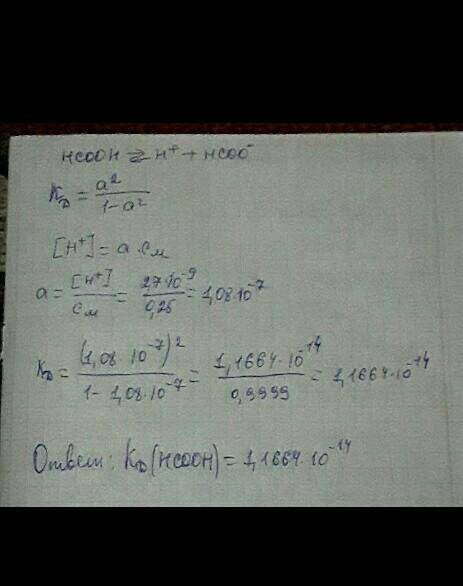 HCOOH ⇄ H⁺ + HCOO⁻
K_D = a² / 1-a²
[H⁺] = a · C_M
a = [H⁺] / C_M = 2,7·10⁻⁹ / 0,25 = 1,08·10⁻⁷
K_D = (1,08·10⁻⁷)² / 1-1,08·10⁻⁷ = 1,1664·10⁻¹⁴ / 0,9999 = 1,1664·10⁻¹⁴
Ответ: K_D(HCOOH) = 1,1664·10⁻¹⁴